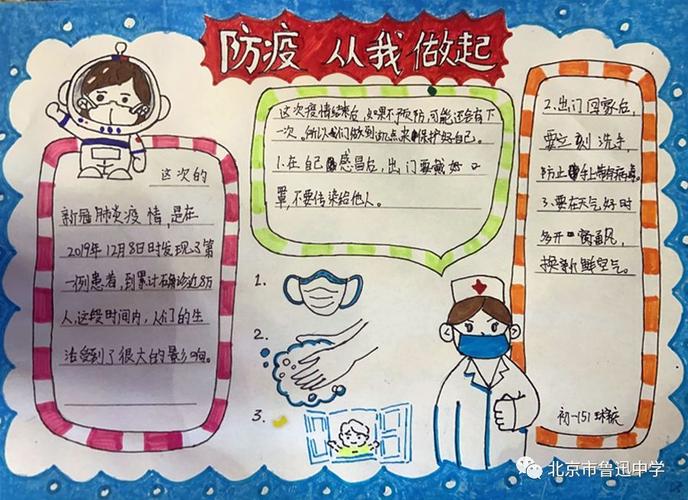 防疫 从我做起
这次的
新冠肺炎疫情,是在
2019年12月8日时发现了第
一例患者,到累计确诊近8万
人,这段时间内,人们的生
活受到了很大的影响。
这次疫情结束后,如果不预防,可能还会有下
一次。所以我们做到几点来保护好自己。
1.在自己感冒后,出门要戴好口
罩,不要传染给他人。
1.
2.
3.
2.出门回家后,
要立刻洗手,
防止手上带有病毒。
3.要在天气好时
多开窗通风,
换新鲜空气。
初一151
北京市鲁迅中学